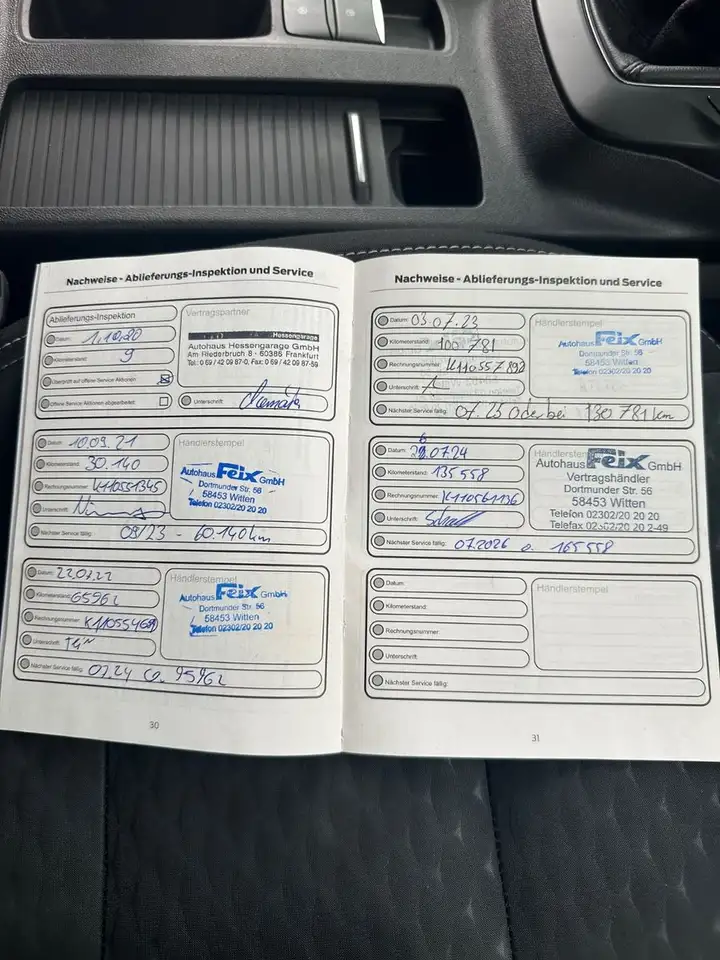 Nachweise - Ablieferungs-Inspektion und Service
Ablieferungs-Inspektion
Datum: 1.10.20
Kilometerstand: 9
Überprüft auf offene Service Aktionen
Offene Service Aktionen abgearbeitet:
Vertragspartner
Hessengarage
Autohaus Hessengarage GmbH
Am Riederbruch 8 - 60386 Frankfurt
Tel.: 0 69 / 42 09 87-0, Fax: 0 69 / 42 09 87-59
Unterschrift:
Datum: 10.09.21
Kilometerstand: 30.140
Rechnungsnummer: K110551345
Unterschrift:
Nächster Service fällig: 09/23 - 60.140 km
Händlerstempel
Autohaus Feix GmbH
Dortmunder Str. 56
58453 Witten
Telefon 02302/20 20 20
Datum: 22.07.22
Kilometerstand: 65962
Rechnungsnummer:
Unterschrift:
Nächster Service fällig: 07.24 95962
Händlerstempel
Autohaus Feix GmbH
Dortmunder Str. 56
58453 Witten
Telefon 02302/20 20 20
30
Nachweise - Ablieferungs-Inspektion und Service
Datum: 03.07.23
Kilometerstand: 100 781
Rechnungsnummer: K110557898
Unterschrift:
Nächster Service fällig: 07.25 oder bei 130 781 km
Händlerstempel
Autohaus Feix GmbH
Dortmunder Str. 56
58453 Witten
Telefon 02302/20 20 20
Datum: 07.24
Kilometerstand: 135558
Rechnungsnummer: K110561136
Unterschrift:
Nächster Service fällig: 07.2026 o. 165558
Händlerstempel
Autohaus Feix GmbH
Vertragshändler
Dortmunder Str. 56
58453 Witten
Telefon 02302/20 20 20
Telefax 02302/20 20 2-49
Datum:
Kilometerstand:
Rechnungsnummer:
Unterschrift:
Nächster Service fällig:
Händlerstempel
31